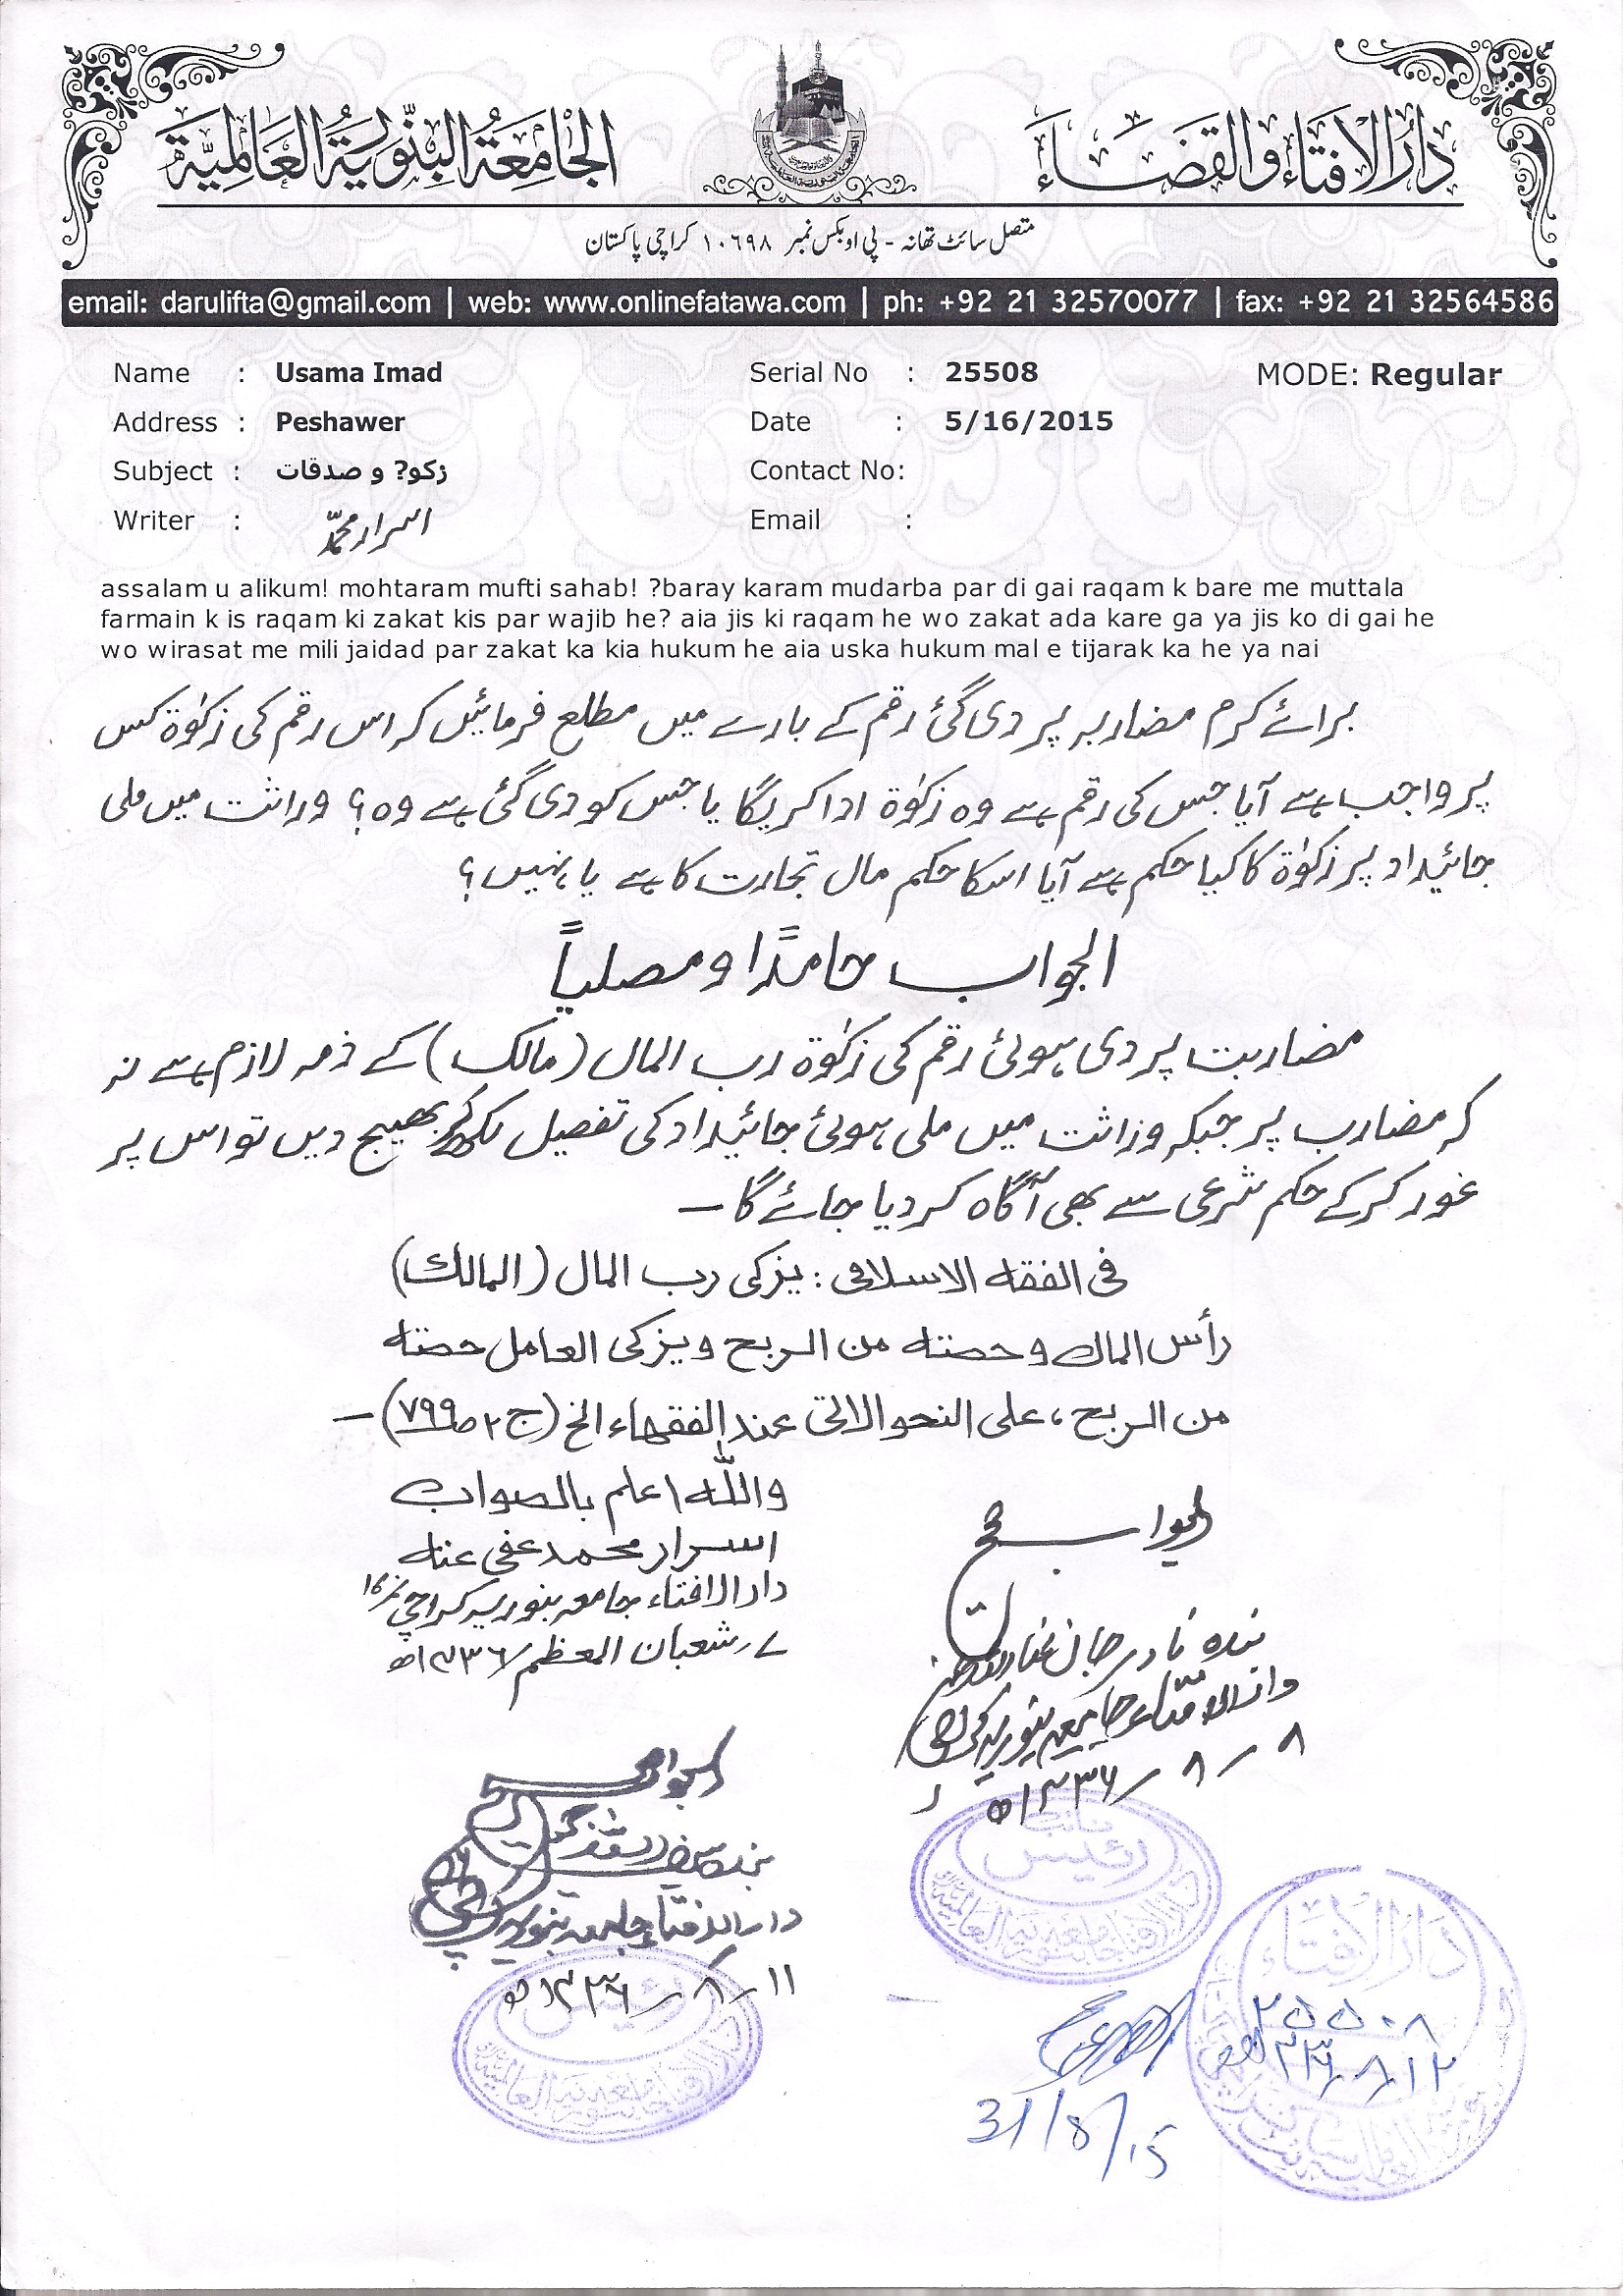 دارُ الافتاء والقضاء
الجامعۃ البنّوریۃ العالمیۃ
متصل سائٹ تھانہ - پی او بکس نمبر ۱۰٦۹۸ کراچی پاکستان
email: darulifta@gmail.com | web: www.onlinefatawa.com | ph: +92 21 32570077 | fax: +92 21 32564586
Name : Usama Imad Serial No : 25508 MODE: Regular
Address : Peshawer Date : 5/16/2015
Subject : زکو? و صدقات Contact No:
Writer : اسرار محمّد Email :
assalam u alikum! mohtaram mufti sahab! ?baray karam mudarba par di gai raqam k bare me muttala
farmain k is raqam ki zakat kis par wajib he? aia jis ki raqam he wo zakat ada kare ga ya jis ko di gai he
wo wirasat me mili jaidad par zakat ka kia hukum he aia uska hukum mal e tijarak ka he ya nai
برائے کرم مضاربہ پر دی گئی رقم کے بارے میں مطلع فرمائیں کہ اس رقم کی زکوٰۃ کس
پر واجب ہے آیا جس کی رقم ہے وہ زکوٰۃ ادا کریگا یا جس کو دی گئی ہے وہ؟ وراثت میں ملی
جائیداد پر زکوٰۃ کا کیا حکم ہے آیا اسکا حکم مال تجارت کا ہے یا نہیں؟
الجواب حامدًا و مصلیاً
مضاربت پر دی ہوئی رقم کی زکوٰۃ رب المال (مالک) کے ذمہ لازم ہے نہ
کہ مضارب پر جبکہ وراثت میں ملی ہوئی جائیداد کی تفصیل لکھ کر بھیج دیں تو اس پر
غور کر کے حکم شرعی سے بھی آگاہ کر دیا جائے گا –
فی الفقه الاسلامی : یزکی رب المال (المالک)
رأس المال و حصته من الربح و یزکی العامل حصته
من الربح، علی النحو الاتی عند الفقهاء الخ (ج ۲ ص ۷۹۹) –
واللّٰه اعلم بالصواب
اسرار محمد عفی عنه
دار الافتاء جامعہ بنوریہ کراچی نمبر ۱۶
۷ ر شعبان المعظم / ۱۴۳۶ھ
الجواب صحیح
بندہ نادر جان
دار الافتاء جامعہ بنوریہ کراچی
۸ – ۸ – ۱۴۳۶ھ
نائب
رئیس
الجواب صحیح
دار الافتاء جامعہ بنوریہ کراچی
۱۱ – ۸ – ۱۴۳۶ھ
رئیس
دار الافتاء
۲۵۵۰۸
31/8/15